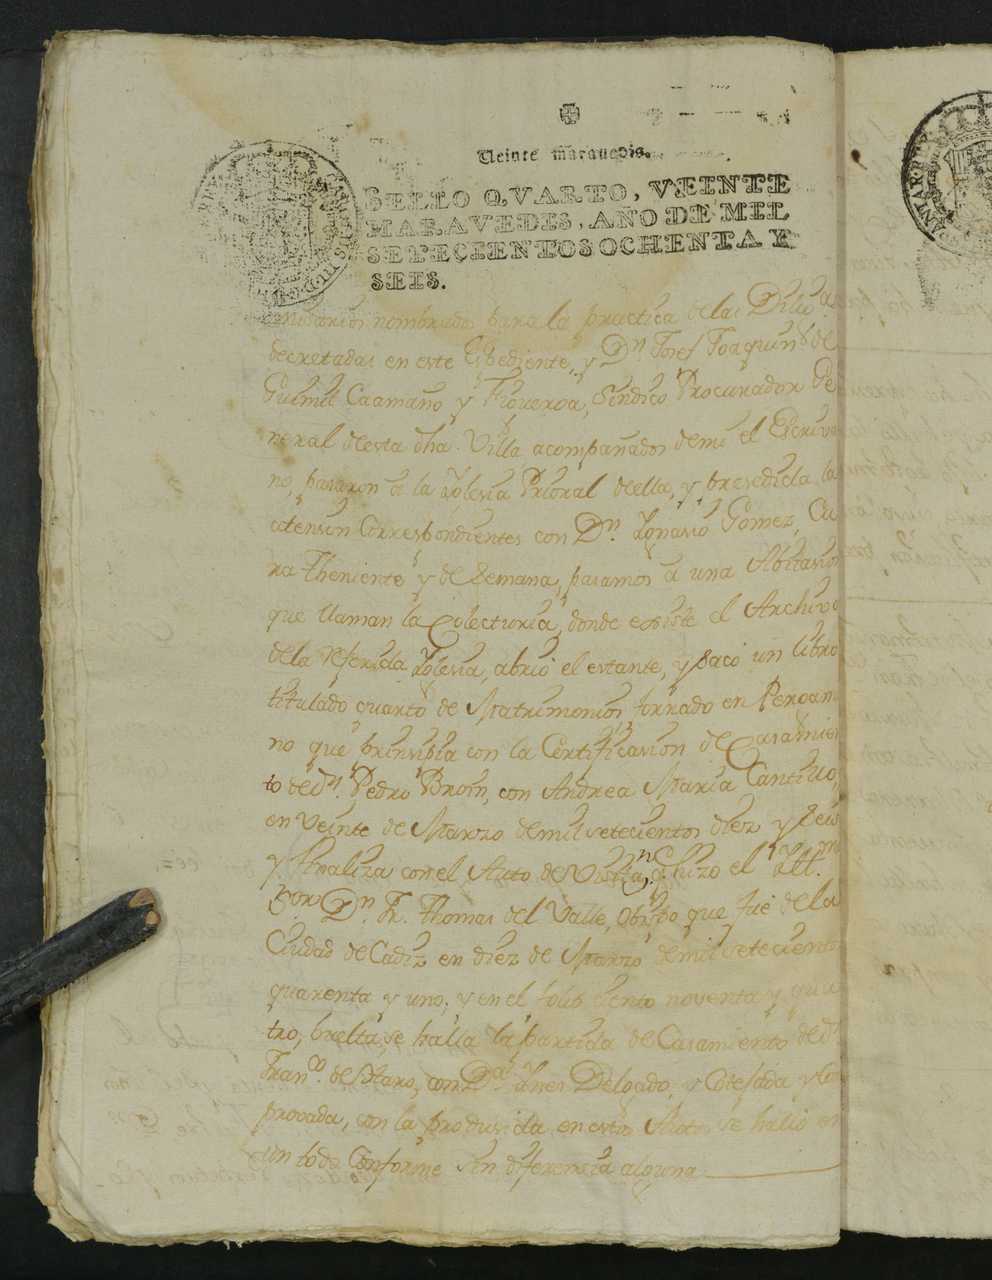 Veinte marauedis.
SELLO QVARTO, VEINTE
MARAVEDIS, AÑO DE MIL
SETECIENTOS OCHENTA Y
SEIS.
misarios nombrados para la practica de las Dilig.as
decretadas en este Espediente, y Dn. Josef Joaquin de
Guimil Caamaño y Figueroa, Sindico Procurador Ge
neral de esta dha. Villa acompañados de mi el Escriva
no, pasaron a la Yglesia Prioral de ella, y presedida la
atension Correspondientes con Dn. Ygnasio Gomez, Cu
ra Theniente y de Semana, pasamos a una Abitasion
que llaman la Colecturia, donde existe el Archivo
de la referida Yglesia, abrio el estante, y saco un libro
titulado cuarto de Matrimonios, forrado en Pergami
no que prinsipia con la Certificasion de Casamien
to de Dn. Pedro Broin, con Andrea Maria Cantillo,
en Veinte de Marzo de mil setecientos diez y seis
y finaliza con el Auto de Visita, q. hizo el Yltmo.
Sor. Dn. Fr. Thomas del Valle, Obispo que fue de la
Ciudad de Cadiz en diez de Marzo de mil setecientos
quarenta y uno; y en el folio Ciento noventa y qua
tro, buelta, se halla la partida de Casamiento de Dn.
Franco. de Haro, con Da. Ynes Delgado, y Cotejada y Com
provada, con la produsida en estos Autos se hallo en
un todo Conforme sin diferensia alguna